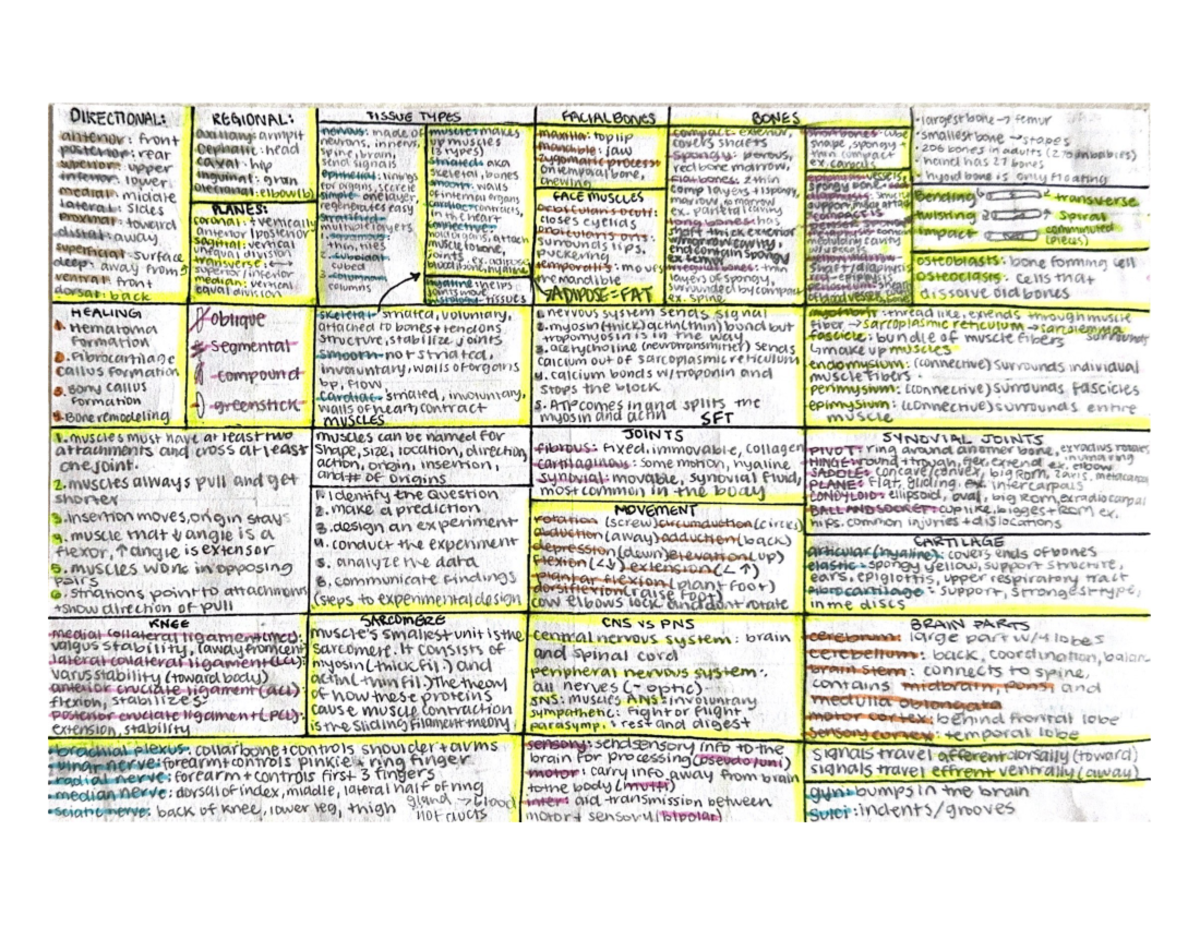 DIRECTIONAL:
anterior: front
posterior: rear
superior: upper
inferior: lower
medial: middle
lateral: sides
proximal: toward
distal: away
superficial: surface
deep: away from
ventral: front
dorsal: back
REGIONAL:
axillary: armpit
cephalic: head
coxal: hip
inguinal: groin
olecranal: elbow(b)
PLANES:
coronal: vertically
anterior/posterior
sagittal: vertical
unequal division
transverse: ↔
superior/inferior
median: vertical
equal division
TISSUE TYPES
nervous: made of
neurons, in nervs,
spine, brain,
send signals
epithelial: linings
for organs, secrete
simple: one layer,
regenerates easy
stratified:
multiple layers
1. squamous:
thin, tiles
2. cuboidal:
cubed
3. columnar:
columns
muscle: makes
up muscles
(3 types)
striated: aka
skeletal, bones
smooth: walls
of internal organs
cardiac: contracts,
in the heart
connective:
hold organs, attach
muscle to bone,
joints. ex. adipose,
blood, bone, hyaline
hyaline: helps
joints move
tissues
FACIAL BONES
maxilla: top lip
mandible: jaw
zygomatic process:
on temporal bone,
chewing
FACE MUSCLES
orbicularis oculi:
closes eyelids
orbicularis oris:
surrounds lips,
puckering
temporalis: moves
mandible
*ADIPOSE=FAT
BONES
compact: exterior,
covers shafts
spongy: porous,
red bone marrow,
flat bones: 2 thin
comp layers + 1 spongy,
marrow, no marrow
ex. parietal
long bones: has
shaft thick exterior
w/ marrow cavity,
end contain spongy
ex. femur
irregular bones: thin
layers of spongy,
surrounded by compact
ex. spine
short bones: cube
shape, spongy +
thin compact
ex. carpals
• largest bone → femur
• smallest bone → stapes
• 206 bones in adults (270 in babies)
• hand has 27 bones
• hyoid bone is only floating
Bending transverse
twisting spiral
impact comminuted
(pieces)
osteoblasts: bone forming cell
osteoclasts: cells that
dissolve old bones
HEALING
1. Hematoma
Formation
2. Fibrocartilage
callus formation
3. Bony callus
formation
4. Bone remodeling
oblique
segmental
compound
greenstick
skeletal: striated, voluntary,
attached to bones + tendons
structure, stabilize joints
smooth: not striated,
involuntary, walls of organs
bp, flow
cardiac: striated, involuntary,
walls of heart, contract
MUSCLES
1. nervous system sends signal
2. myosin (thick) actin (thin) bond but
tropomyosin is in the way
3. acetycholine (neurotransmitter) sends
calcium out of sarcoplasmic reticulum
4. calcium bonds w/ troponin and
stops the block
5. ATP comes in and splits the
myosin and actin SFT
myofibril: thread like, extends through muscle
fiber → sarcoplasmic reticulum → sarcolemma
surrounds
fascicle: bundle of muscle fibers
↳ make up muscles
endomysium: (connective) surrounds individual
muscle fibers
perimysium: (connective) surrounds fascicles
epimysium: (connective) surrounds entire
muscle
1. muscles must have at least two
attachments and cross at least
one joint.
2. muscles always pull and get
shorter
3. insertion moves, origin stays
4. muscle that ↓ angle is a
flexor, ↑ angle is extensor
5. muscles work in opposing
pairs
6. striations point to attachments
+ show direction of pull
muscles can be named for
shape, size, location, direction,
action, origin, insertion,
and # of origins
1. identify the question
2. make a prediction
3. design an experiment
4. conduct the experiment
5. analyze the data
6. communicate findings
(steps to experimental design
JOINTS
fibrous: fixed, immovable, collagen
cartilaginous: some motion, hyaline
synovial: movable, synovial fluid,
most common in the body
MOVEMENT
rotation (screw) circumduction (circle)
abduction (away) adduction (back)
depression (down) elevation (up)
flexion (∠↓) extension (∠↑)
plantar flexion (plant foot)
dorsiflexion (raise foot)
cow elbows lock and dont rotate
SYNOVIAL JOINTS
PIVOT: ring around another bone, ex radius rotates
HINGE: round + trough, flex, extend ex. elbow
SADDLE: concave/convex, big ROM, 2 axis, metacarpal
PLANE: flat, gliding ex. intercarpals
CONDYLOID: ellipsoid, oval, big ROM, ex radiocarpal
BALL AND SOCKET: cup like, biggest ROM ex.
hips. common injuries + dislocations
CARTILAGE
articular (hyaline): covers ends of bones
elastic: spongy yellow, support structure,
ears, epiglottis, upper respiratory tract
fibrocartilage: support, strongest type,
in the discs
KNEE
medial collateral ligament (MCL):
valgus stability, (away from center)
lateral colateral ligament (LCL):
varus stability (toward body)
anterior cruciate ligament (ACL):
flexion, stabilizes
posterior cruciate ligament (PCL):
extension, stability
SARCOMERE
muscle's smallest unit is the
sarcomere. It consists of
myosin (thick fil.) and
actin (thin fil.) The theory
of how these proteins
cause muscle contraction
is the sliding filament theory
CNS VS PNS
central nervous system: brain
and spinal cord
peripheral nervous system:
all nerves (- optic)
SNS: muscles ANS: involuntary
sympathetic: fight or flight
parasymp: rest and digest
BRAIN PARTS
cerebrum: large part w/ 4 lobes
cerebellum: back, coordination, balance
brain stem: connects to spine,
contains midbrain, pons, and
medulla oblongata
motor cortex: behind frontal lobe
sensory cortex: temporal lobe
• brachial plexus: collarbone + controls shoulder + arms
• ulnar nerve: forearm + controls pinkie + ring finger
• radial nerve: forearm + controls first 3 fingers
• median nerve: dorsal of index, middle, lateral half of ring
• sciatic nerve: back of knee, lower leg, thigh
gland → blood
not ducts
sensory: send sensory info to the
brain for processing (pseudo/uni)
motor: carry info away from brain
to the body (multi)
inter: aid transmission between
motor + sensory (bipolar)
signals travel afferent dorsally (toward)
signals travel effrent ventrally (away)
gyri: bumps in the brain
sulci: indents/grooves